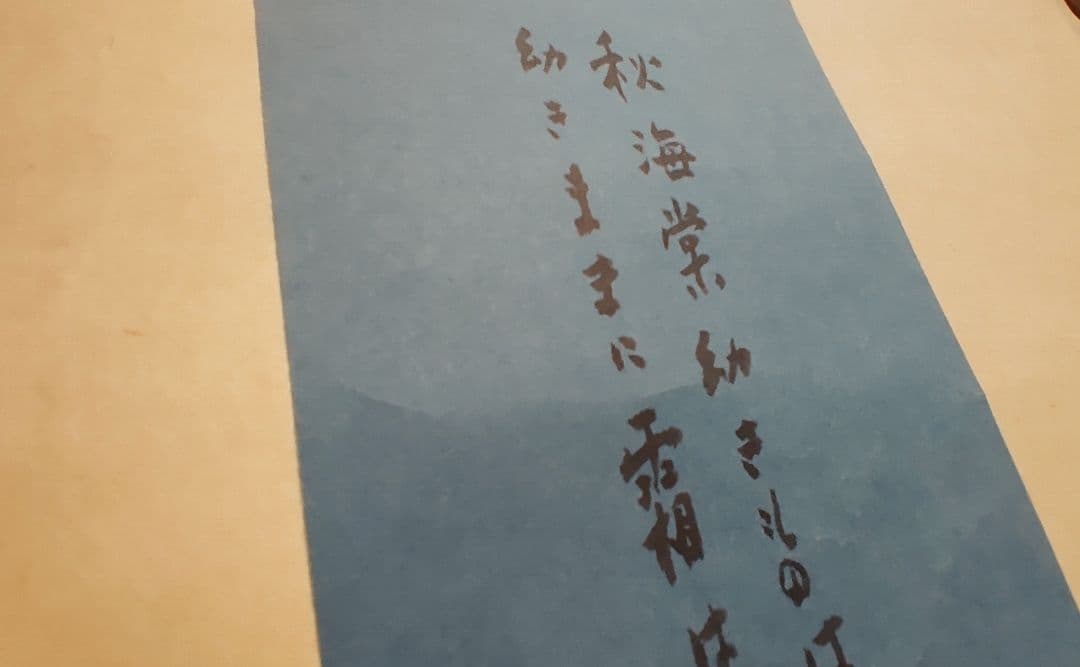 秋海棠幼きもの
幼きままに霜